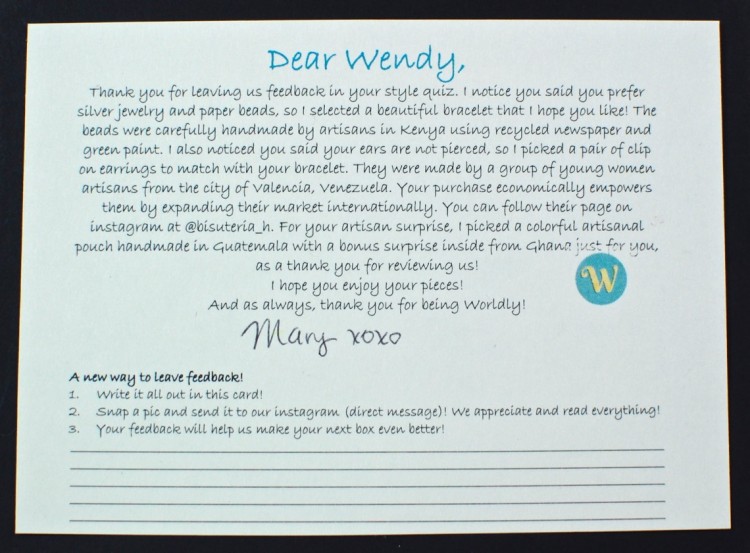 Dear Wendy,
Thank you for leaving us feedback in your style quiz. I notice you said you prefer
silver jewelry and paper beads, so I selected a beautiful bracelet that I hope you like! The
beads were carefully handmade by artisans in Kenya using recycled newspaper and
green paint. I also noticed you said your ears are not pierced, so I picked a pair of clip
on earrings to match with your bracelet. They were made by a group of young women
artisans from the city of Valencia, Venezuela. Your purchase economically empowers
them by expanding their market internationally. You can follow their page on
instagram at @bisuteria_h. For your artisan surprise, I picked a colorful artisanal
pouch handmade in Guatemala with a bonus surprise inside from Ghana just for you,
as a thank you for reviewing us!
I hope you enjoy your pieces!
W
And as always, thank you for being Worldly!
Mary xoxo
A new way to leave feedback!
1. Write it all out in this card!
2. Snap a pic and send it to our instagram (direct message)! We appreciate and read everything!
3. Your feedback will help us make your next box even better!